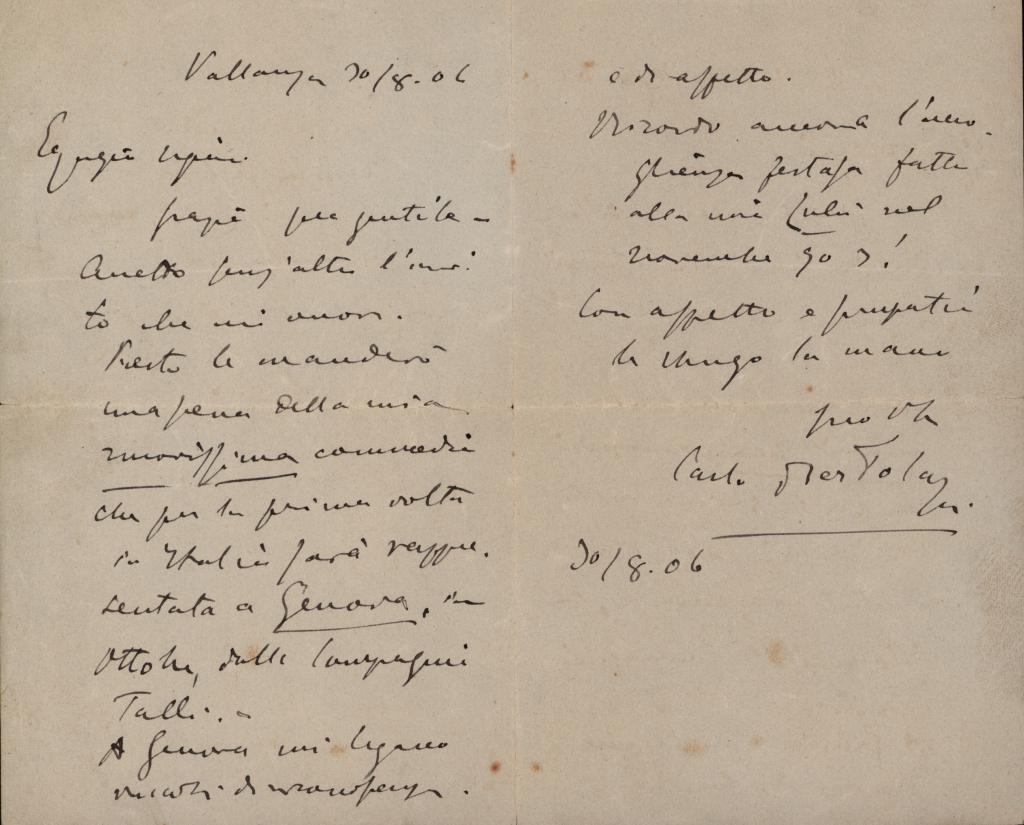 Vallanza 30/8.06
Egregio signore.
grazie sue gentile -
Accetto senz'altro l'invi-
to che mi onora.
Presto le manderò
una scena della mia
nuovissima commedia
che per la prima volta
in Italia sarà rappre-
sentata a Genova, in
Ottobre, dalla Compagnia
Talli. -
A Genova mi legano
ricordi di riconoscenza
e di affetto.
Ricordo ancora l'acco-
glienza festosa fatta
alla mia Lulù nel
novembre 903!
Con affetto e simpatia
le stringo la mano
suo
Carlo Bertolazzi.
30/8.06